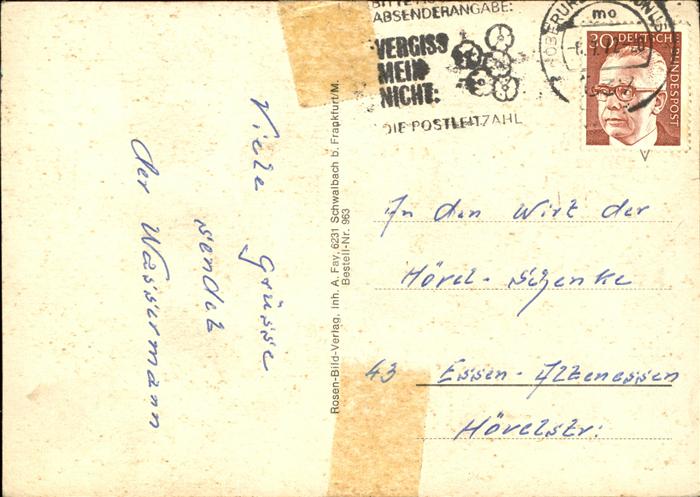 ABSENDERANGABE:
VERGISS
MEIN
NICHT:
DIE POSTLEITZAHL
mo
30 DEUTSCHE
BUNDESPOST
Viele Grüsse
sendet
der Wassermann
Rosen-Bild-Verlag, Inh. A. Fay, 6231 Schwalbach b. Frankfurt/M.
Bestell-Nr. 963
An den Wirt der
Hövel-Schenke
43 Essen-Altenessen
Hövelstr.